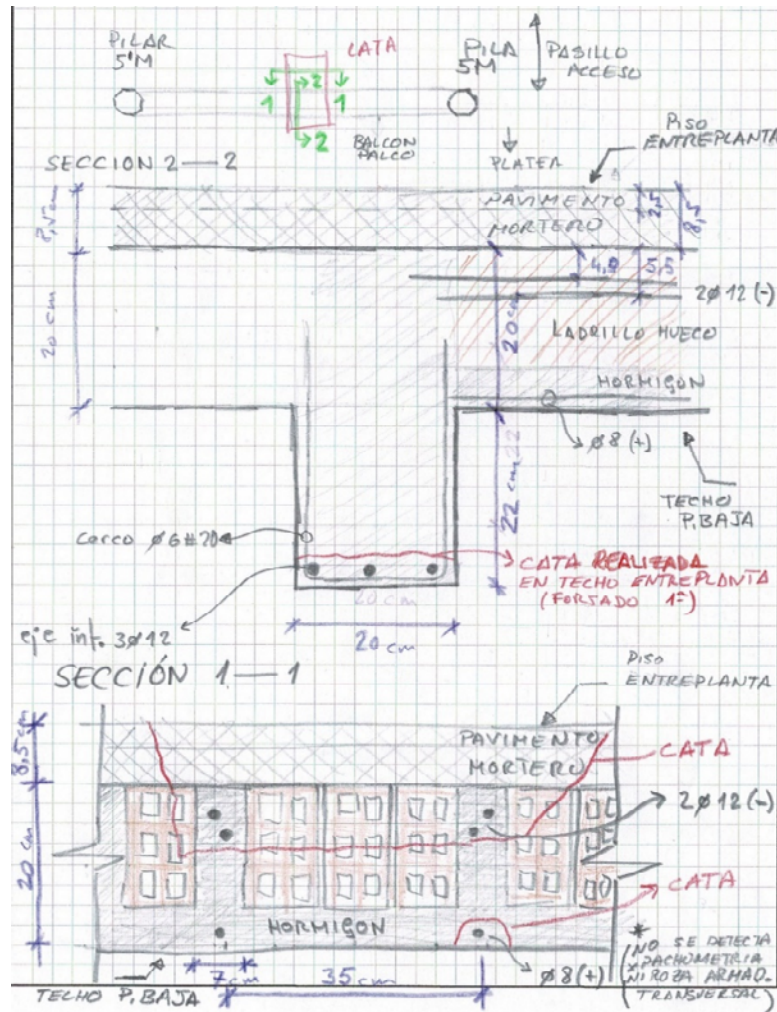 PILAR
5'M
CATA
PILA
5M
PASILLO
ACCESO
1
2
1
2
BALCON
PALCO
PLATEA
PISO
ENTREPLANTA
SECCION 2—2
8,5cm
PAVIMENTO
MORTERO
2,5
8,5
20 cm
4,0
5,5
2Ø12(-)
20cm
LADRILLO HUECO
HORMIGON
Ø8(+)
22 cm
TECHO
P.BAJA
cerco Ø6#20
CATA REALIZADA
EN TECHO ENTREPLANTA
(FORJADO 1º)
20 cm
20 cm
eje inf. 3Ø12
SECCIÓN 1—1
PISO
ENTREPLANTA
8,5cm
PAVIMENTO
MORTERO
CATA
2Ø12(-)
20 cm
CATA
HORMIGON
*
(NO SE DETECTA
PACHOMETRIA
NI ROZA ARMAD.
TRANSVERSAL)
Ø8(+)
7cm
35cm
TECHO P.BAJA